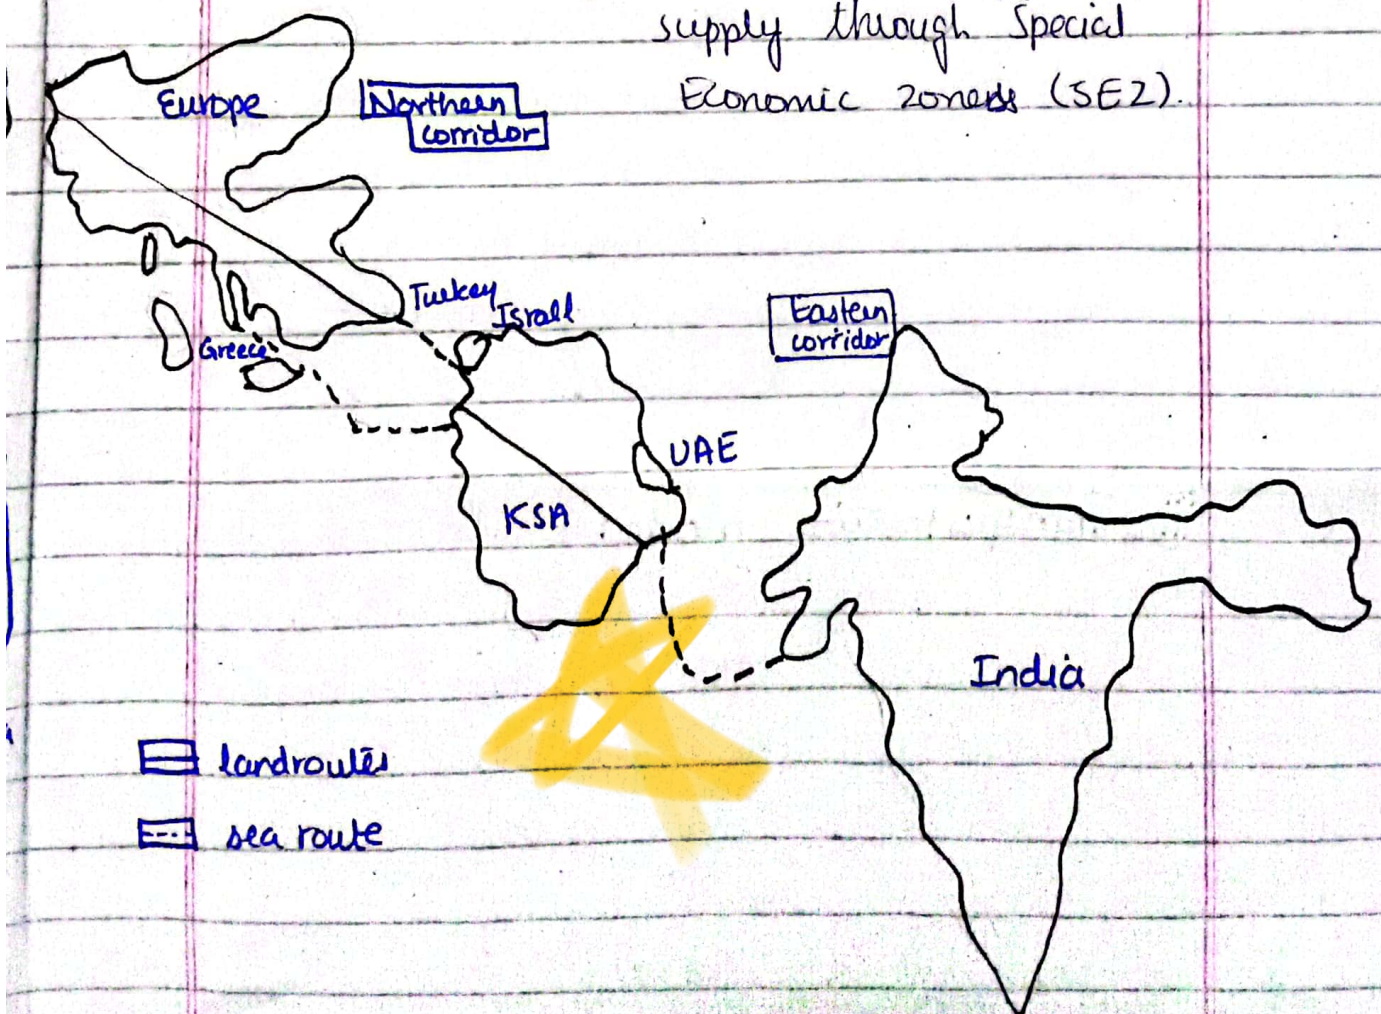 supply through Special
Economic Zones (SEZ).
Europe
Northern
corridor
Turkey
Israel
Greece
Eastern
corridor
UAE
KSA
India
landroutes
sea route